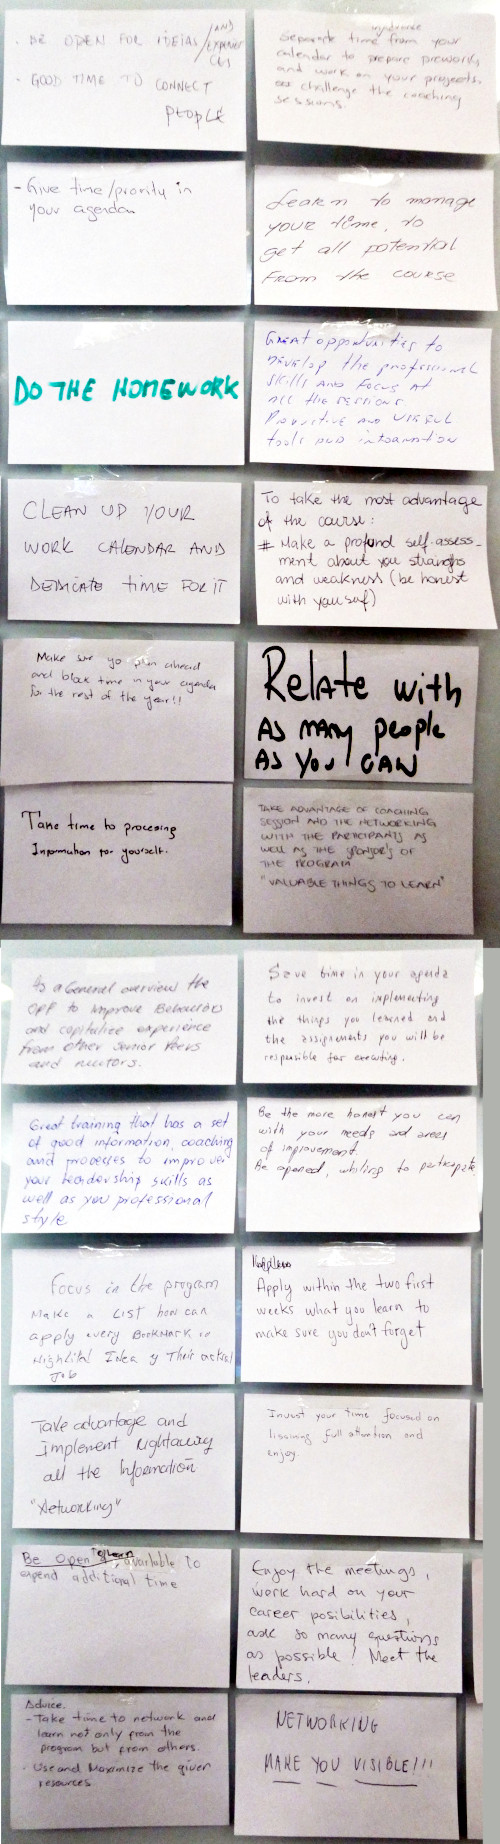 · BE OPEN FOR IDEIAS / AND
EXPERIENCES
· GOOD TIME TO CONNECT
PEOPLE
in advance
Separate time from your
calendar to prepare prework
and work on your projects.
challenge the coaching
sessions.
- Give time/priority in
your agenda
Learn to manage
your time, to
get all potential
from the course
DO THE HOMEWORK
Great opportunities to
develop the professional
skills and focus at
all the sessions
Productive and useful
tools and information
CLEAN UP YOUR
WORK CALENDAR AND
DEDICATE TIME FOR IT
To take the most advantage
of the course:
# Make a profund self-assess-
ment about you strenghs
and weakness (be honest
with youself)
Make sure yo plan ahead
and block time in your agenda
for the rest of the year!!
RELATE with
AS MANY people
AS YOU CAN
Take time to procesing
Information for yourself.
TAKE ADVANTAGE OF COACHING
SESSION AND THE NETWORKING
WITH THE PARTICIPANTS AS
WELL AS THE SPONSOR'S OF
THE PROGRAM
"VALUABLE THINGS TO LEARN"
As a General overview the
opp to improve Behaviors
and capitalize experience
from other senior Peers
and mentors.
Save time in your agenda
to invest on implementing
the things you learned and
the assignments you will be
responsible for executing.
Great training that has a set
of good information, coaching
and processes to improve
your leadership skills as
well as you professional
style.
Be the more honest you can
with your needs and areas
of improvement.
Be opened, whiling to participate
Focus in the program
Make a List how can
apply every Bookmark or
Highlited Idea Their actual
Job
Apply within the two first
weeks what you learn to
make sure you don't forget
Take advantage and
implement rightaway
all the information
"Networking"
Invest your time focused on
lisening full attention and
enjoy.
Be Open to learn, available to
expend additional time
Enjoy the meetings,
work hard on your
career posibilities,
ask so many questions
as possible! Meet the
leaders.
Advice.
- Take time to network and
learn not only from the
program but from others.
· Use and Maximize the given
resources
NETWORKING
MAKE YOU VISIBLE!!!